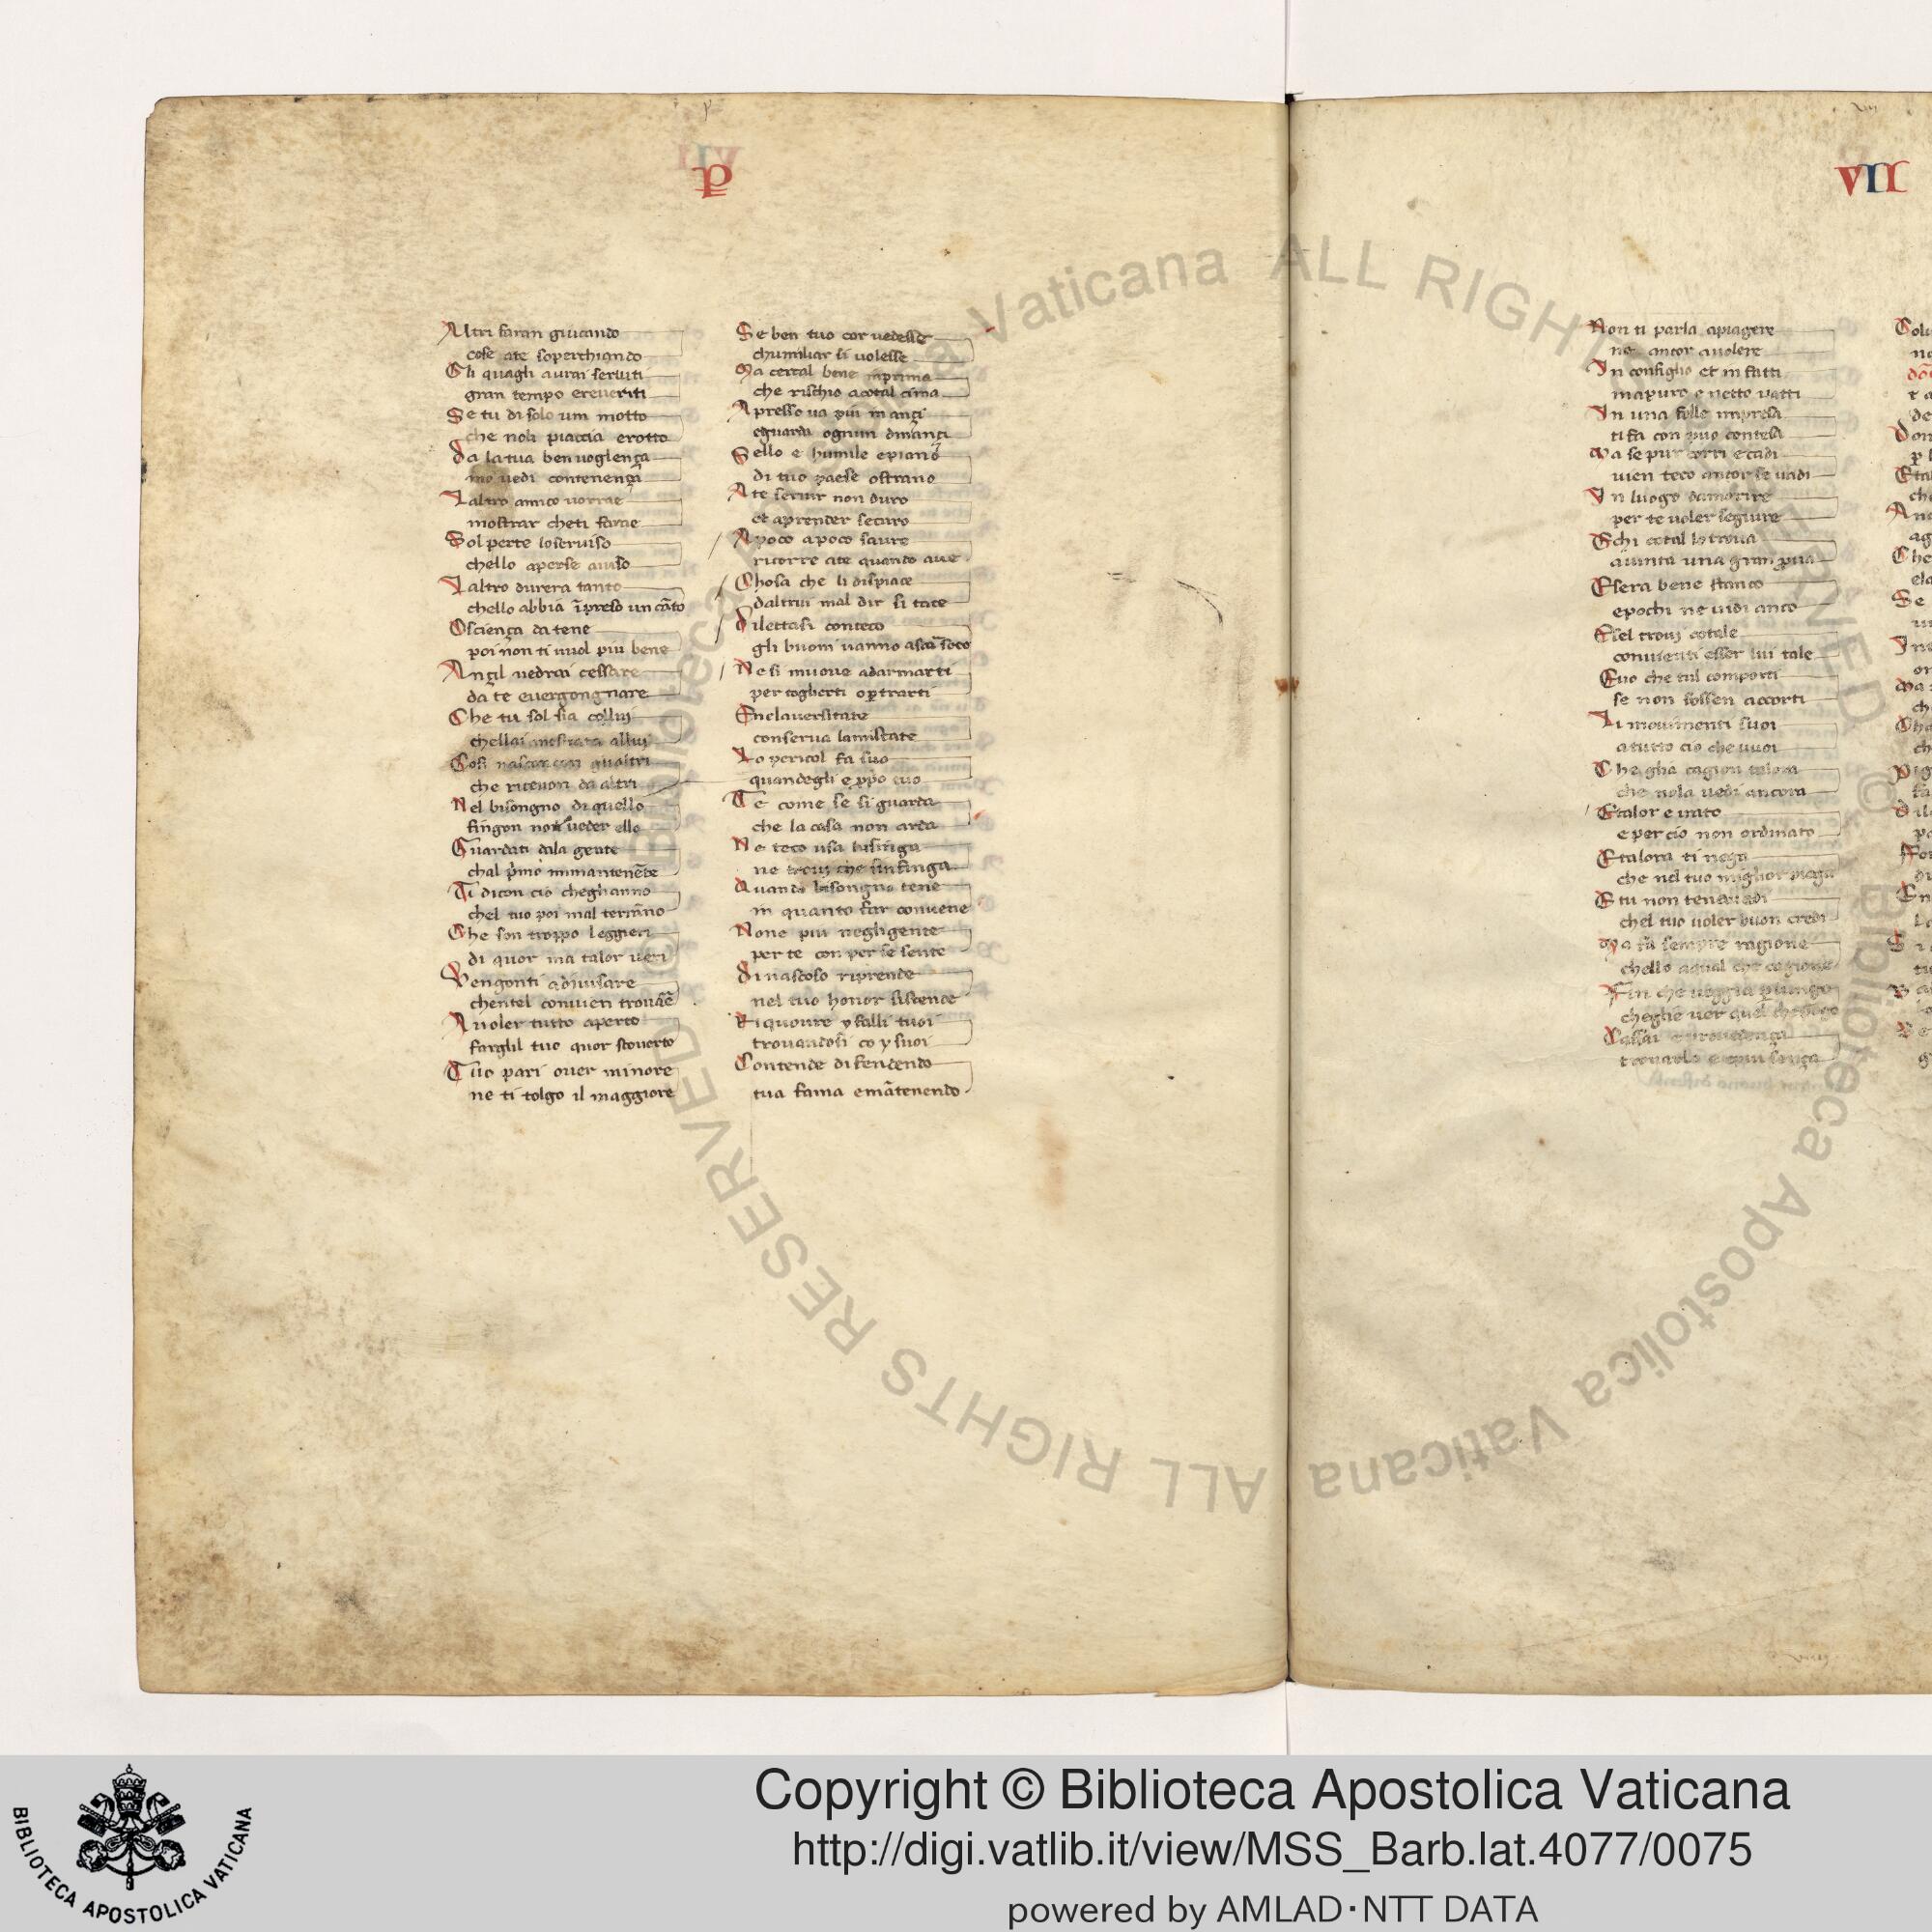 P
Altri faran giucando
cose ate soperchiando
Gli quagli aurai seruiti
gran tempo ereueriti
Se tu di solo um motto
che noli piaccia erotto
Da latua benuoglença
mo uedi contenença
Laltro amico uorrae
mostrar cheti farae
Sol perte loseruiso
chello aperse auiso
Laltro durera tanto
chello abbia īpreso un cāto
Osciença datene
poi non ti uuol piu bene
Angil uedrai cessare
da te euergongnare
Che tu sol sia collui
chellai mostrata allui
Cosi nascon
che riceuon da altri
Nel bisongno di quello
fingon non ueder ello
Guardati dala gente
chal p̄mo inmantenēte
Ti dicon cio cheghanno
chel tuo poi mal terrāno
Che son troppo leggieri
di quor ma talor ueri
Vengonti adiuisare
chentel conuien trouāē
Auoler tutto aperto
farglil tuo quor scouerto
Tuo pari ouer minore
ne ti tolgo il maggiore
Se ben tuo cor uedesse
chumiliar si uolesse
Ma cercal bene inprima
che rischio acotal cima
Apresso ua piu inançi
eguarda ognun dinançi
Sello e humile epiano
di tuo paese ostrano
Ate seruir non duro
et aprender securo
Apoco apoco saure
ricorre ate quando aue
Chosa che li dispiace
daltrui mal dir si tace
Dilettasi conteco
gli buoni uanno
Ne si muoue adarmarti
per toglierti
Enclauersitate
conserua lamistate
Lo pericol fa suo
quandegli e p̱p̱o tuo
Te come se si guarda
che la casa non arda
Ne teco usa lusinga
ne troui che sinfinga
Quando bisongno tene
in quanto far conuene
None piu negligente
per te con per se sente
Di nascoso riprende
nel tuo honor sistende
Riquoure y falli tuoi
trouandosi co y suoi
Contende difendendo
tua fama emātenendo
VII
Non ti parla apiagere
ne ancor auolere
In consiglio et in fatti
mapuro e netto uatti
In una folle inpresa
ti fa con puo contesa
Ma se pur corri ecadi
uien teco ancor se uadi
In luogo damorire
per te uoler seguire
Echi cotal lo troua
auinta una gran p̱ua
Esera bene stanco
epochi ne uidi anco
Esel troui cotale
conuienti esser lui tale
Euo che tul comporti
se non fossen accorti
Li mouimenti suoi
atutto cio che uuoi
Che gha cagion talora
che nola uedi ancora
Etalor e irato
e per cio non ordinato
Etalora ti nega
che nel tuo miglior piega
E tu non tenauiedi
chel tuo uoler buon credi
Ma fa sempre ragione
chello aqual che cagione
Fin che ueggia
cheglie uer quel
Copyright © Biblioteca Apostolica Vaticana
http://digi.vatlib.it/view/MSS_Barb.lat.4077/0075
powered by AMLAD·NTT DATA
BIBLIOTECA APOSTOLICA VATICANA